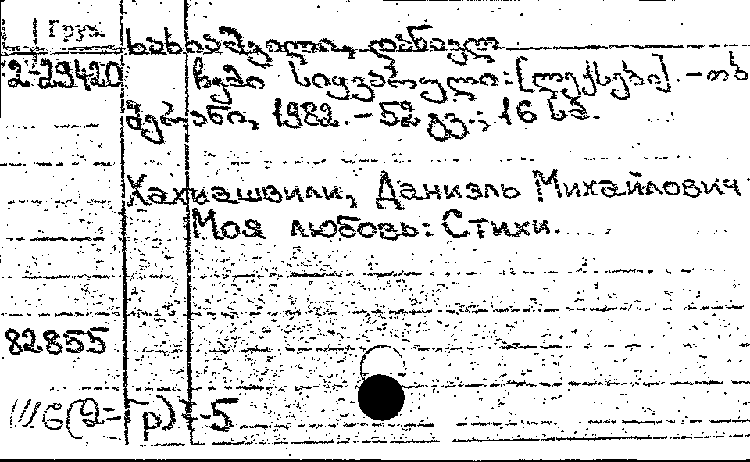 Груз.
ხახიაშვილი, დანიელ
2-29420 ჩემი სიყვარული: [ლექსები]. - თბ
მერანი, 1982. - 52 გვ.; 16 სმ.
Хахиашвили, Даниэль Михайлович
Моя любовь: Стихи.
82855
С(2=Гр)